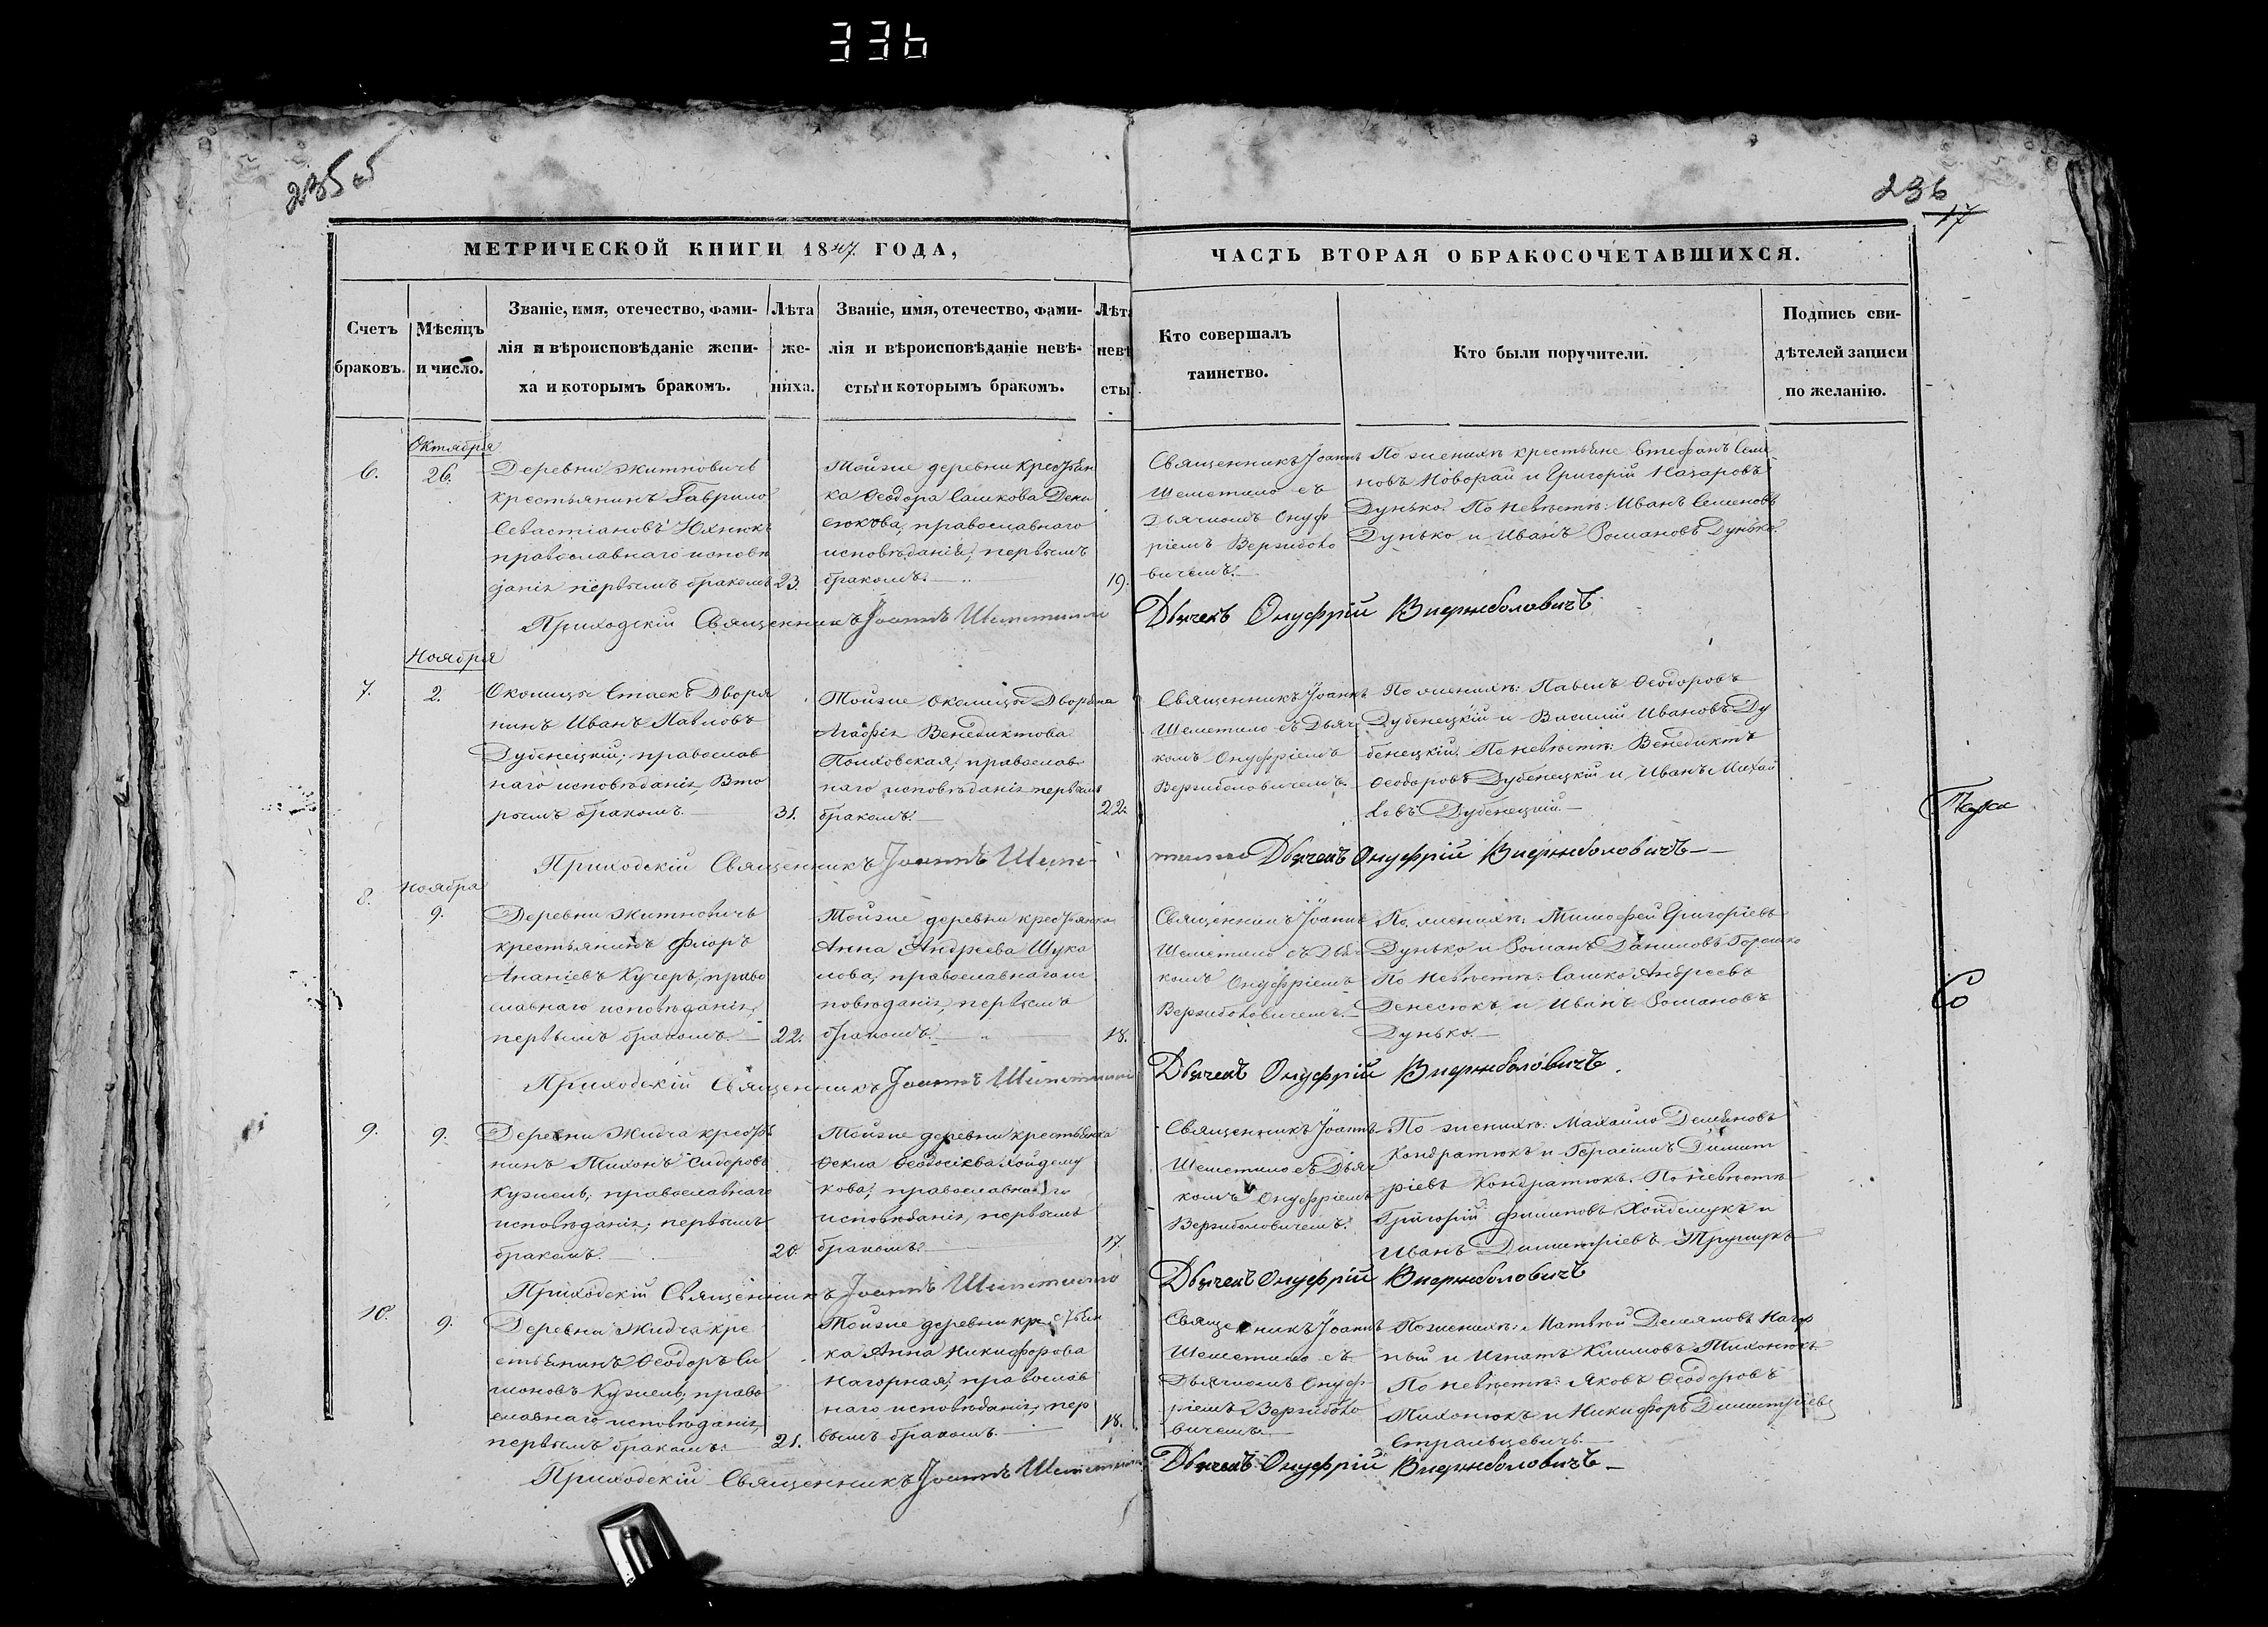 336
235 об
236
17
МЕТРИЧЕСКОЙ КНИГИ 1847. ГОДА,
ЧАСТЬ ВТОРАЯ О БРАКОСОЧЕТАВШИХСЯ.
Счетъ браковъ.
Мѣсяцъ и число.
Званіе, имя, отечество, фами-
лія и вѣроисповѣданіе жени-
ха и которымъ бракомъ.
Лѣта
же-
ниха.
Званіе, имя, отечество, фами-
лія и вѣроисповѣданіе невѣ-
сты и которымъ бракомъ.
Лѣта
невѣ
сты
Кто совершалъ
таинство.
Кто были поручители.
Подпись сви-
дѣтелей записи
по желанію.
6.
Октября
26.
Деревни Житновичъ
крестьянинъ Гаврило
Севастіановъ Юхнюкъ
православнаго исповѣ
данія первымъ бракомъ
23.
Тойже деревни крестьян
ка Ѳеодора Сашкова Дени
сюкова, православнаго
исповѣданія, первымъ
бракомъ.
19.
Священникъ Іоаннъ
Шеметило съ
Дьячкомъ Онуф
ріемъ Вержболо
вичемъ.
По женихѣ крестьяне Стефанъ Семе
новъ Новорай и Григорій Назаровъ
Дунько. По невѣстѣ: Иванъ Семеновъ
Дунько и Иванъ Романовъ Дунько.
Приходскій Священникъ Іоаннъ Шеметилло
Дьячекъ Онуфрій Виержболовичъ
Ноября
7.
2.
Околицы Ставокъ Дворя
нинъ Иванъ Павловъ
Дубенецкій, православ
наго исповѣданія, Вто
рымъ бракомъ.
31.
Тойже околицы Дворянка
Агафія Венедиктова
православ
наго исповѣданія первымъ
бракомъ.
22.
Священникъ Іоаннъ
Шеметило съ Дьяч
комъ Онуфріемъ
Вержболовичемъ.
По женихѣ: Павелъ Ѳеодоровъ
Дубенецкій и Василій Ивановъ Ду
бенецкій. По невѣстѣ: Венедиктъ
Ѳеодоровъ Дубенецкій и Иванъ Михай
ловъ Дубенецкій.
Приходскій Священникъ Іоаннъ Шеме-
тилло Дьячекъ Онуфрій Виержболовичъ
8.
Ноября
9.
Деревни Житновичъ
крестьянинъ Флоръ
Ананіевъ Кучеръ, право
славнаго исповѣданія,
первымъ бракомъ.
22.
Тойже деревни крестьянка
Анна Андреева Шука
лова, православнаго ис
повѣданія, первымъ
бракомъ.
18.
Священникъ Іоаннъ
Шеметило съ Дьяч
комъ Онуфріемъ
Вержболовичемъ.
По женихѣ: Тимофей Григоріевъ
Дунько и Романъ Даниловъ Горошко
По невѣстѣ: Сашко Андреевъ
Денесюкъ и Иванъ Романовъ
Дунько.
Приходскій Священникъ Іоаннъ Шеметилло
Дьячекъ Онуфрій Виержболовичъ.
9.
9.
Деревни Жидча крестья
нинъ Тихонъ Сидоровъ
Кужель, православнаго
исповѣданія, первымъ
бракомъ.
20.
Тойже деревни крестьянка
Ѳекла Хойдему
кова, православнаго
исповѣданія, первымъ
бракомъ.
17.
Священникъ Іоаннъ
Шеметило съ Дьяч
комъ Онуфріемъ
Вержболовичемъ.
По женихѣ: Михайло Демьяновъ
Кондратюкъ и Герасимъ Димит
ріевъ Кондратюкъ. По невѣстѣ
Григорій Филиповъ Хойдемукъ и
Иванъ Димитріевъ
Приходскій Священникъ Іоаннъ Шеметилло
Дьячекъ Онуфрій Виержболовичъ
10.
9.
Деревни Жидча кре
стьянинъ Ѳеодоръ Си
моновъ Кужель, право
славнаго исповѣданія,
первымъ бракомъ.
21.
Тойже деревни крестьян
ка Анна Никифорова
Нагорная, православ
наго исповѣданія, пер
вымъ бракомъ.
18.
Священникъ Іоаннъ
Шеметило съ
Дьячкомъ Онуф
ріемъ Вержболо
вичемъ.
По женихѣ: Матвѣй Демьяновъ Нагор
ный и Игнатъ Климовъ Тихонюкъ
По невѣстѣ: Яковъ Ѳеодоровъ
Тихонюкъ и Никифоръ Димитріевъ
Стральцевичъ.
Приходскій Священникъ Іоаннъ Шеметилло
Дьячекъ Онуфрій Виержболовичъ